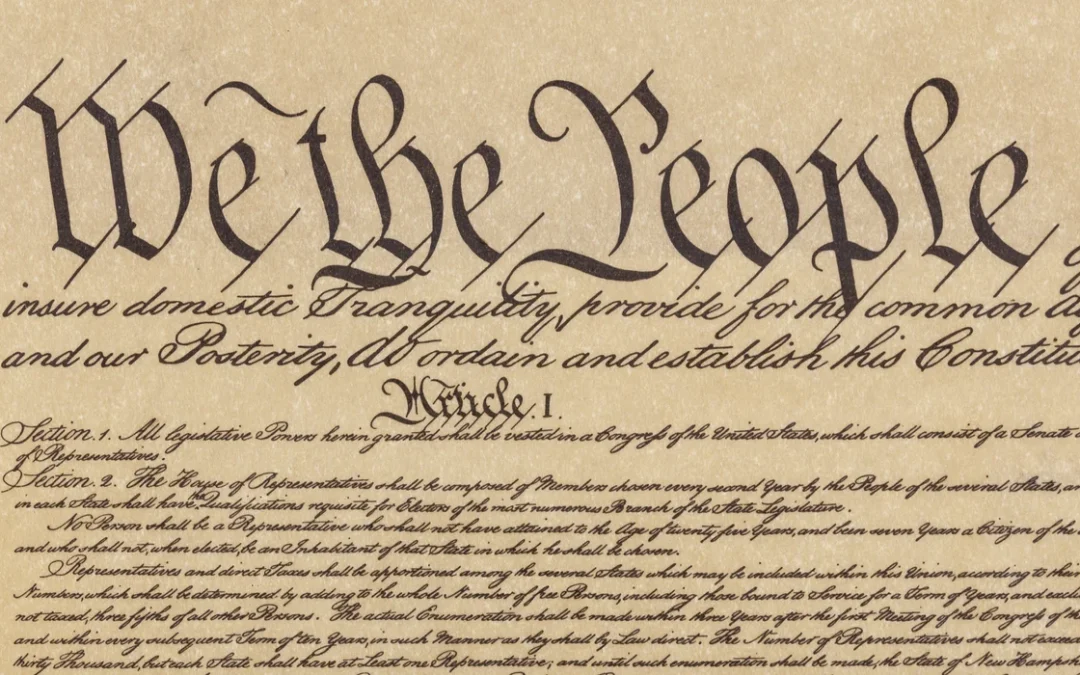 We the People
insure domestic Tranquility, provide for the common
and our Posterity, do ordain and establish this Constitu
Article. I.
Section. 1. All legislative Powers herein granted shall be vested in a Congress of the United States, which shall consist of a Senate
of Representatives.
Section. 2. The House of Representatives shall be composed of Members chosen every second Year by the People of the several States, an
in each State shall have the Qualifications requisite for Electors of the most numerous Branch of the State Legislature.
No Person shall be a Representative who shall not have attained to the Age of twenty five Years, and been seven Years a Citizen of the
and who shall not, when elected, be an Inhabitant of that State in which he shall be chosen.
Representatives and direct Taxes shall be apportioned among the several States which may be included within this Union, according to their
Numbers, which shall be determined by adding to the whole Number of free Persons, including those bound to Service for a Term of Years, and exclu
not taxed, three fifths of all other Persons. The actual Enumeration shall be made within three Years after the first Meeting of the Congress of the
and within every subsequent Term of ten Years, in such Manner as they shall by Law direct. The Number of Representatives shall not exceed
thirty Thousand, but each State shall have at Least one Representative; and until such enumeration shall be made, the State of New Hampsh